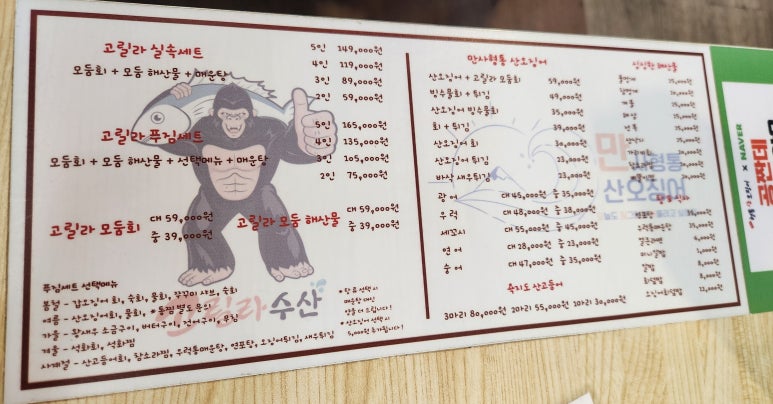 고릴라 실속세트
모둠회 + 모둠 해산물 + 매운탕
5인 149,000원
4인 119,000원
3인 89,000원
2인 59,000원
고릴라 푸짐세트
모둠회 + 모둠 해산물 + 선택메뉴 + 매운탕
5인 165,000원
4인 135,000원
3인 105,000원
2인 75,000원
고릴라 모둠회
대 59,000원
중 39,000원
고릴라 모둠 해산물
대 59,000원
중 39,000원
푸짐세트 선택메뉴
봄철 - 갑오징어 회, 숙회, 물회, 쭈꾸미 샤브, 숙회
여름 - 산오징어회, 물회,
가을 - 왕새우 소금구이, 버터구이, 전어구이, 무침
겨울 - 석화회, 석화찜
사계절 - 산고등어회, 참소라찜, 우럭통매운탕, 연포탕, 오징어튀김, 새우튀김
매운탕 대신
양을 더 드립니다!
* 산오징어 선택시
5,000원 추가됩니다!
고릴라수산
만사형통 산오징어
산오징어 + 고릴라 모둠회 59,000원
빙수물회 + 튀김 49,000원
산오징어 빙수물회 35,000원
회 + 튀김 39,000원
산오징어 회 30,000원
산오징어 튀김 23,000원
바삭 새우튀김 23,000원
광어 대 45,000원 중 35,000원
우럭 대 48,000원 중 38,000원
세꼬시 대 55,000원 중 45,000원
연어 대 28,000원 중 23,000원
숭어 대 47,000원 중 35,000원
욕지도 산고등어
3마리 80,000원 2마리 55,000원 1마리 30,000원
만사형통
산오징어
싱싱한 해산물
멍게
해삼
전복
우럭통매운탕 35,000원
공짬데
X NAVER